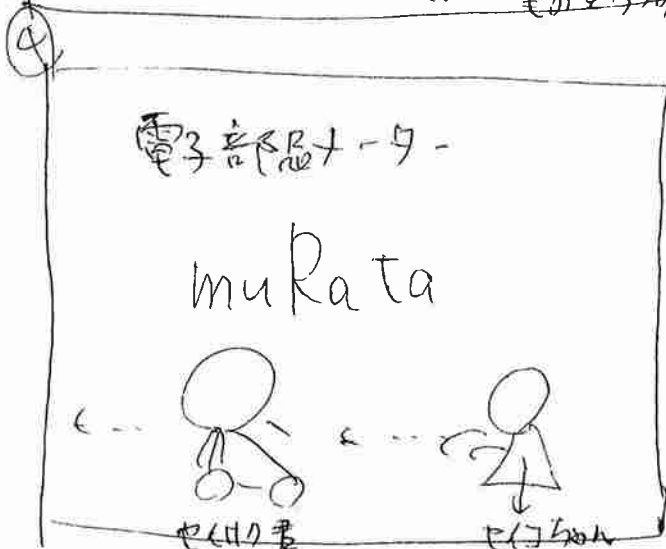 ④
電子部品メーカー
muRata
セイサク君 セイコちゃん